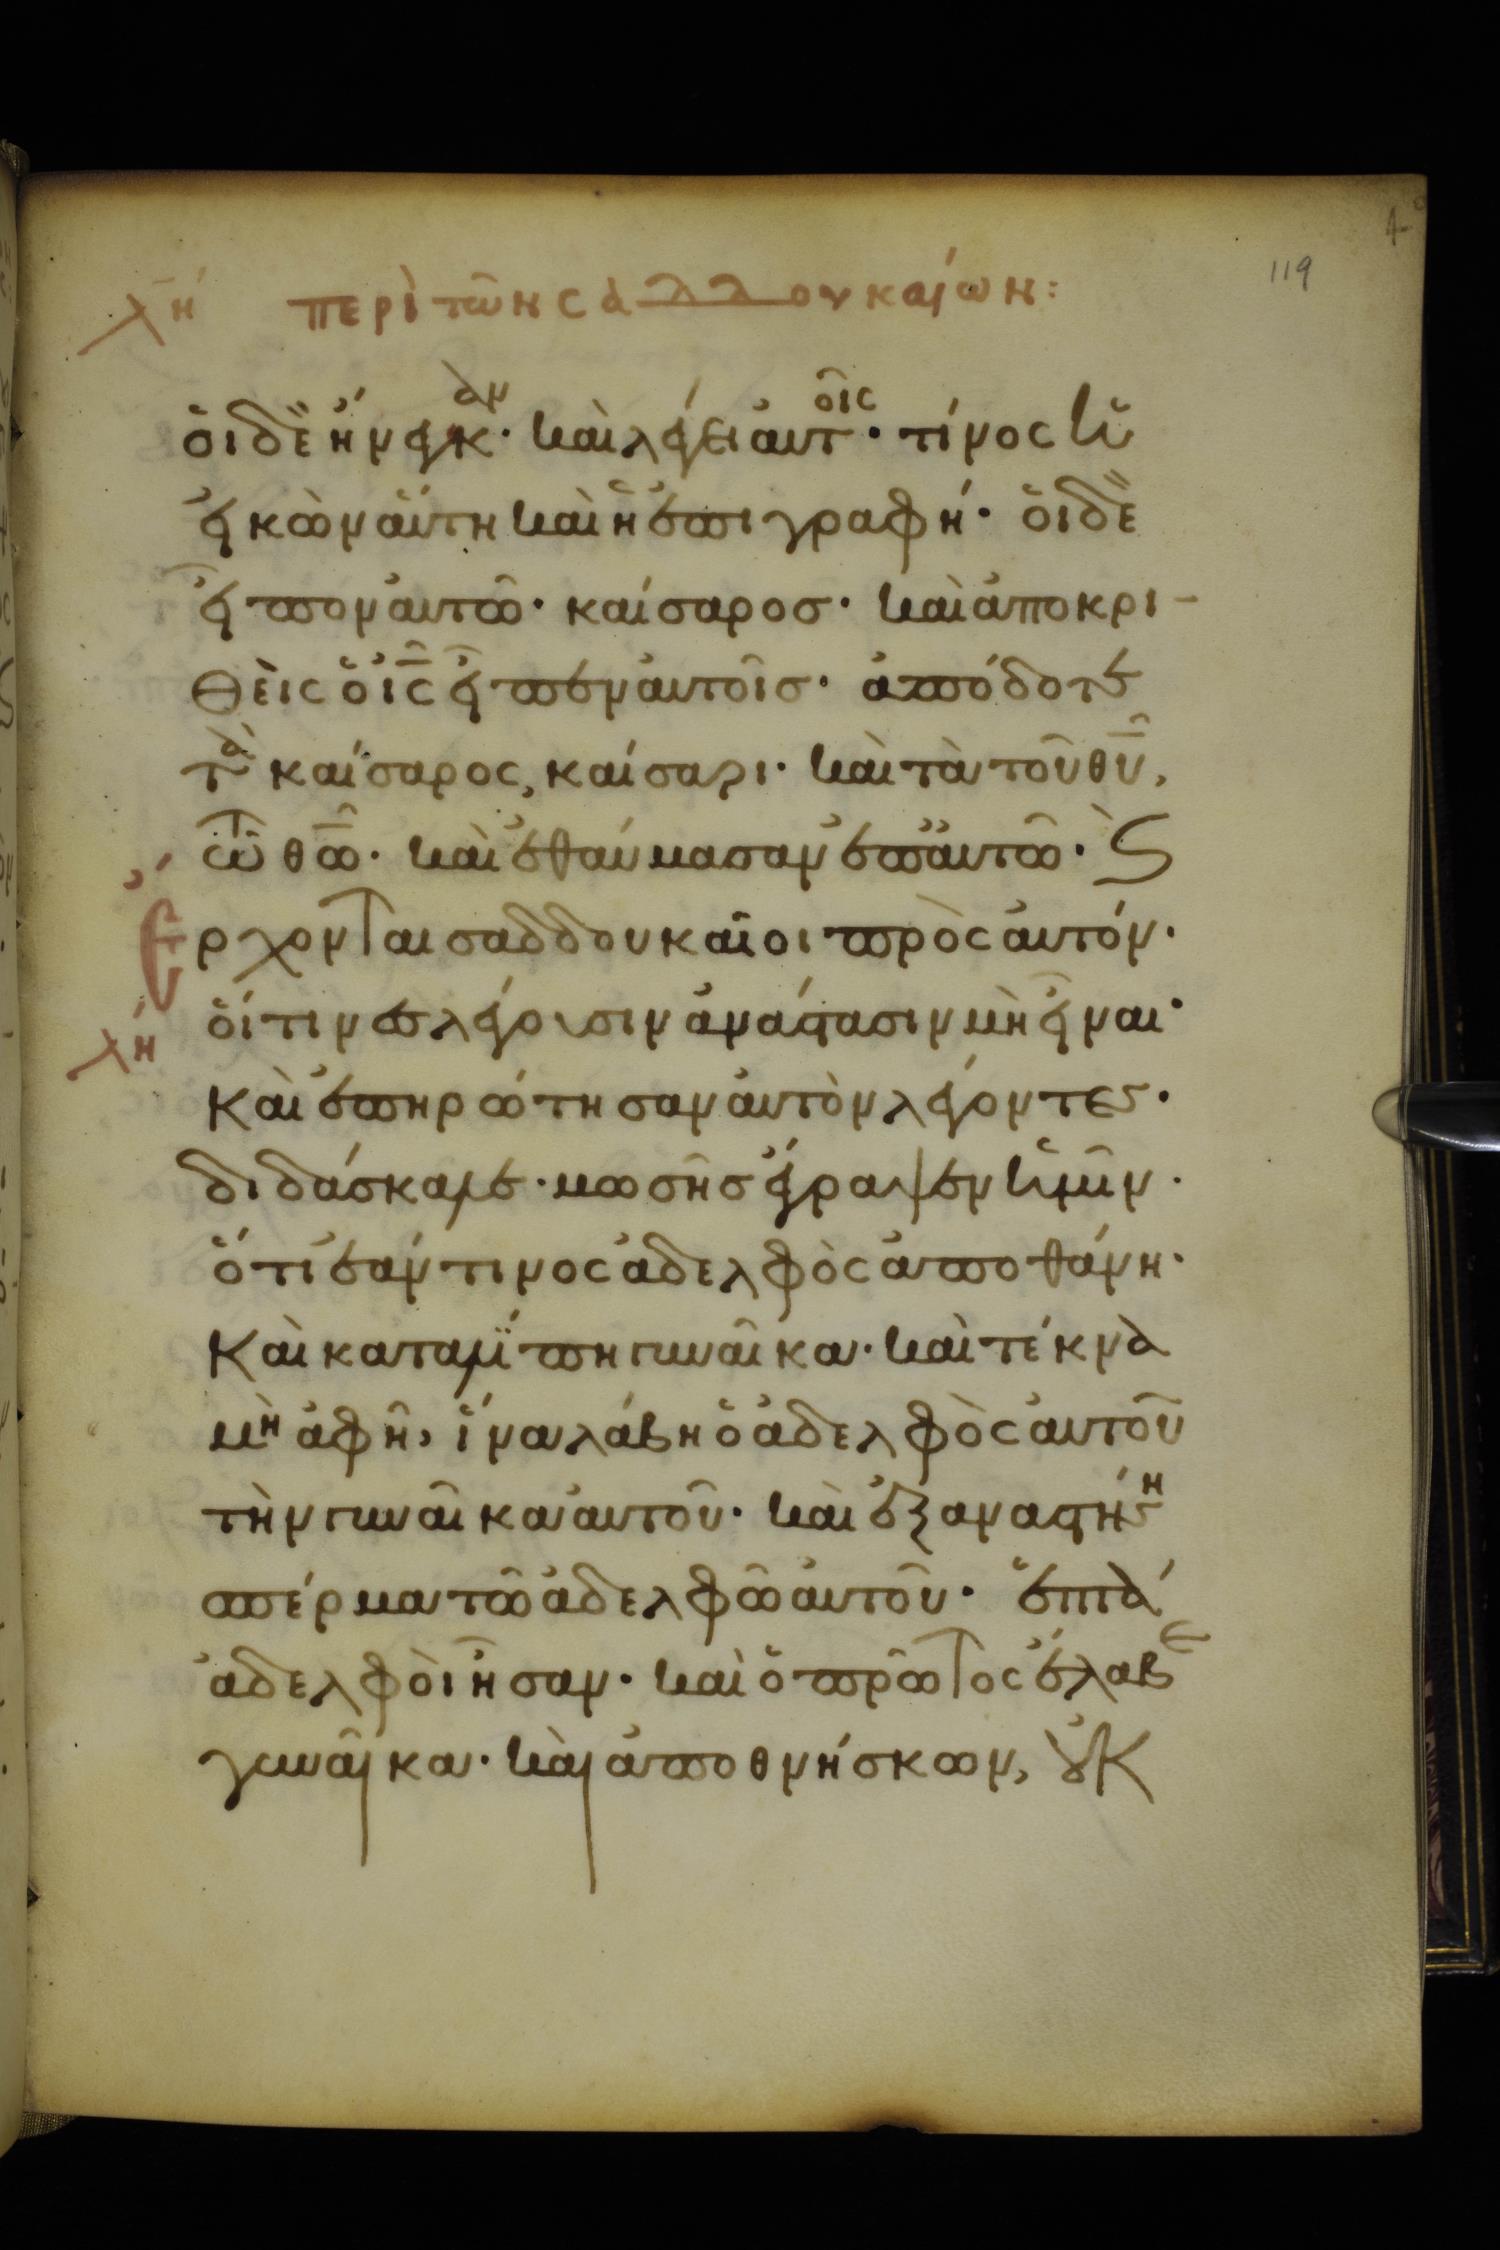 119
λη περὶ τῶν σαδδουκαίων:
ὁι δὲ ἤνεγκαν· καὶ λέγει αὐτοῖς· τίνος ἡ
εἰκὼν αὕτη καὶ ἡ ἐπιγραφή· ὁι δὲ
εἶπον αὐτῶ· καίσαρος· καὶ ἀποκρι-
θεὶς ὁ ις εἶπεν αὐτοῖς· ἀπόδοτε
τὰ καίσαρος, καίσαρι· καὶ τὰ τοῦ θυ,
τῶ θω· καὶ ἐθαύμασαν ἐπ' αὐτῶ· Ϛ
Ερχονται σαδδουκαῖοι πρὸς αὐτόν·
λη ὅιτινες λέγουσιν ἀνάστασιν μὴ εἶναι·
Καὶ ἐπηρώτησαν αὐτὸν λέγοντες·
διδάσκαλε· μωσῆς ἔγραψεν ἡμῖν·
ὅτι ἐάν τινος ἀδελφὸς ἀποθάνη·
Καὶ καταλίπη γυναῖκα· καὶ τέκνα
μὴ ἀφῆ, ἵνα λάβη ὁ ἀδελφὸς αὐτοῦ
τὴν γυναῖκα αὐτοῦ· καὶ ἐξαναστήση
σπέρμα τῶ ἀδελφῶ αὐτοῦ· ἑπτὰ
ἀδελφοὶ ἦσαν· καὶ ὁ πρῶτος ἔλαβε
γυναῖκα· καὶ ἀποθνήσκων, οὐκ